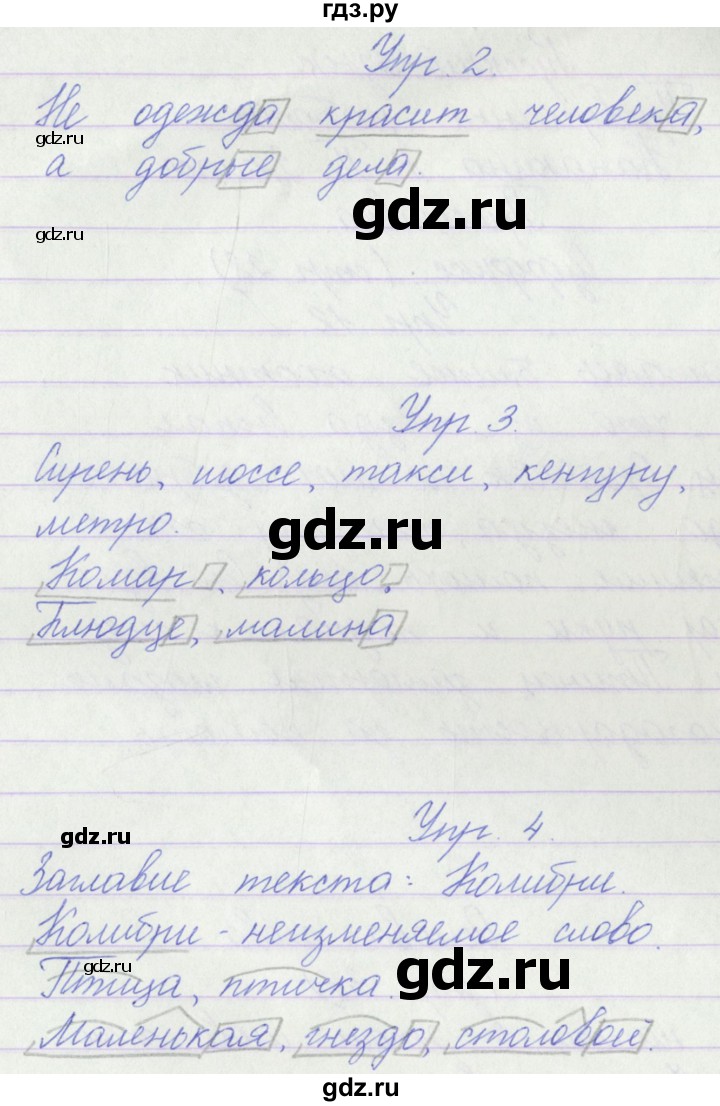 гдз.ру
Упр. 2.
Не одежда красит человека,
gdz.ru
а добрые дела.
gdz.ru
gdz.ru
Упр. 3.
Сирень, шоссе, такси, кенгуру,
метро.
gdz.ru
Комар, кольцо,
Блюдце, малина
gdz.ru
Упр. 4.
Заглавие текста: Колибри.
Колибри - неизменяемое слово.
gdz.ru
gdz.ru
Птица, птичка.
Маленькая, гнездо, столовой.
gdz.ru